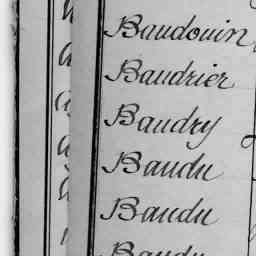 Baudouin
Baudrier
Baudry
Baudu
Baudu
Baudu